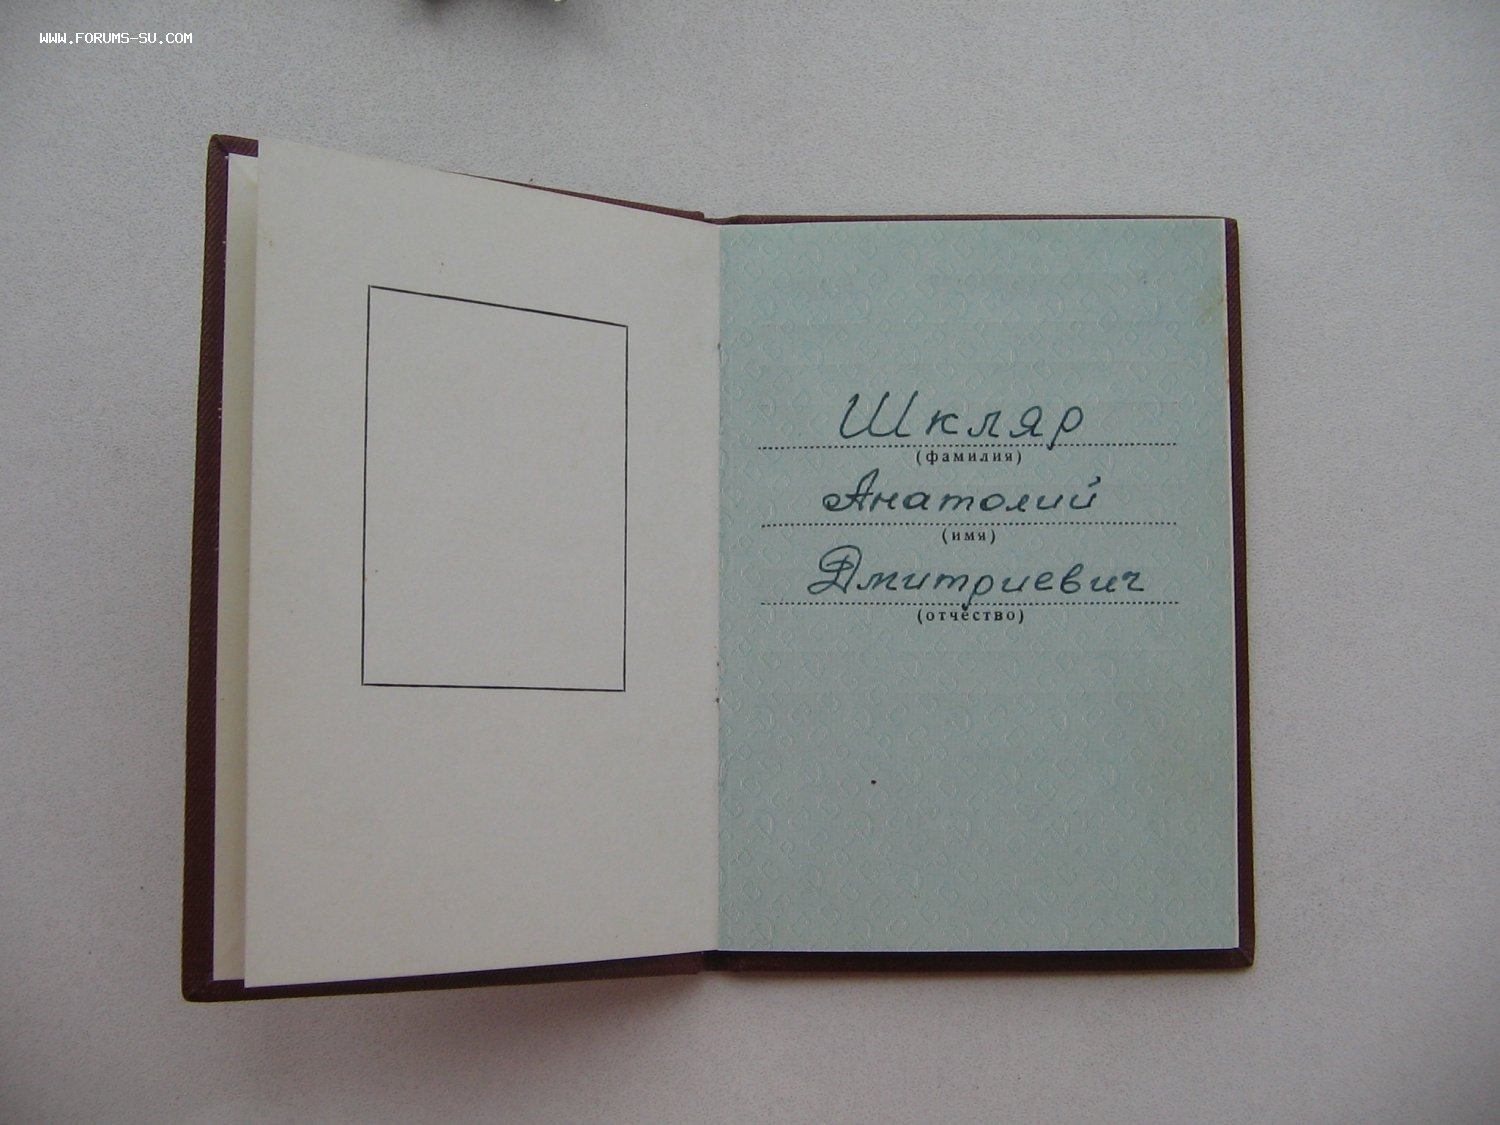 WWW.FORUMS-SU.COM
Шкляр
(фамилия)
Анатолий
(имя)
Дмитриевич
(отчество)